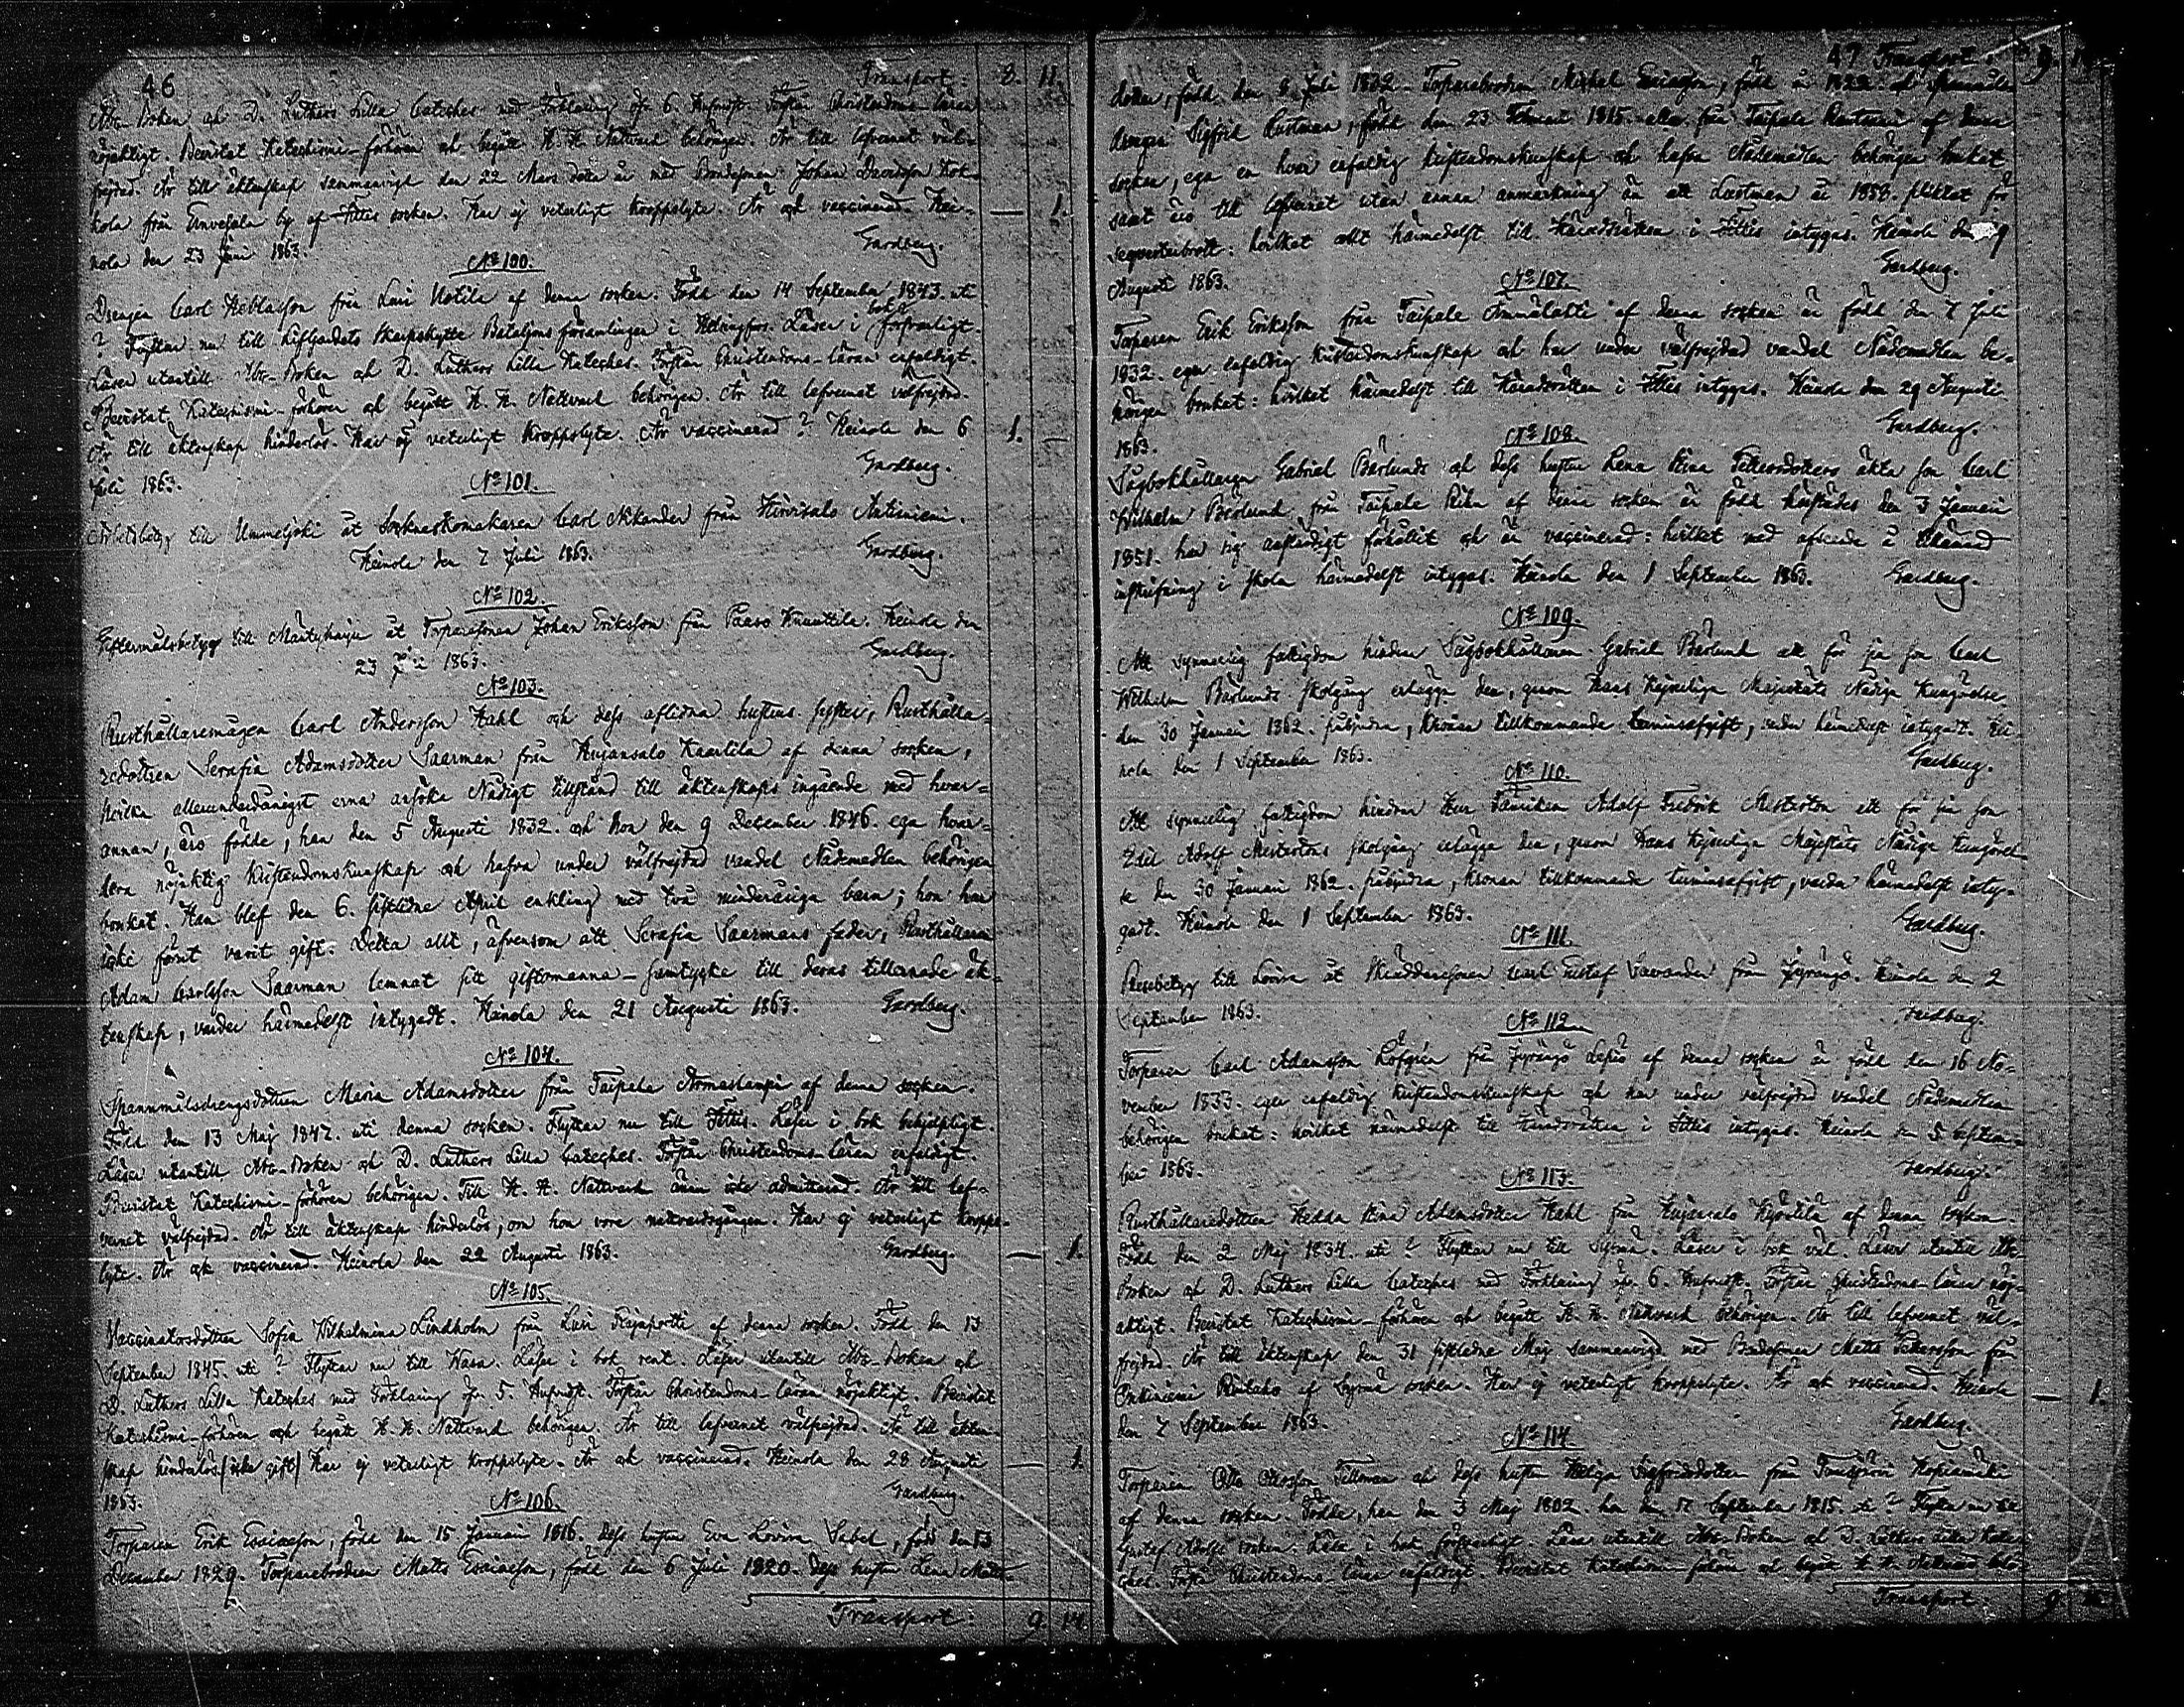 46
Transport: 8. 11.
Abc-Boken och D. Luthers Lilla Cateches med Förklaring öfr 6. Hufvudst. Förstår Christendoms-läran
nöjaktigt. Bevistat Katechismi-förhören och begått H. H. Nattvard behörigen. Är till lefvernet väl-
frejdad. Är till äktenskap sammanvigd den 22 Mars detta år med Bondesonen Johan Davidsson Kok-
kola från by af Ittis socken. Har ej veterligt kroppslyte. Är och vaccinerad. Hei- — 1.
nola den 23 Juni 1863. Gardberg.
No 100.
Drengen Carl from Lusi Uotila af denna socken. Född den 14 September 1843. uti
? Flyttar nu till Lifgardets Skarpskytte Bataljons församlingen i Helsingfors. Läser i bok försvarligt.
Läser utantill Abc-Boken och D. Luthers Lilla Kateches. Förstår Christendoms-läran enfaldigt.
Bevistat Katechismi-förhören och begått H. H. Nattvard behörigen. Är till lefvernet välfrejdad.
Är till äktenskap hinderlös. Har ej veterligt kroppslyte. Är vaccinerad? Heinola den 6 1. —
Juli 1863. Gardberg.
No 101.
Arbetsbetyg till Ummeljoki åt Sockneskomakaren Carl Nikander från Hirvisalo Antiniemi.
Heinola den 7 Juli 1863. Gardberg.
No 102.
Eftermälsbetyg till Mäntyharju åt Torparesonen Johan Eriksson från Paaso Knuuttila. Heinola den
23 1863. Gardberg.
No 103.
Rusthållaremågen Carl Andersson Hahl och dess aflidna hustrus syster, Rusthålla-
redottren Serafia Adamsdotter Saarman från Hujansalo Kaartila af denna socken,
hvilka allerunderdånigst erna ansöka Nådigt tillstånd till äktenskaps ingående med hvar-
annan, äro födde, han den 5 Augusti 1832. och hon den 9 December 1846. ega hvar-
dera nöjaktig kristendomskunskap och hafva under välfrejdad vandel Nådemedlen behörigen
brukat. Han blef den 6. sistlidne April enkling med två minderåriga barn; hon har
icke förut varit gift. Detta allt, äfvensom att Serafia Saarmans fader, Rusthållaren
Adam Carlsson Saarman lemnat sitt giftomanna-samtycke till deras tillernade äk-
tenskap, varder härmedelst intygadt. Heinola den 21 Augusti 1863. Gardberg.
No 104.
Spannmålsdrengsdottren Maria Adamsdotter från Taipale af denna socken.
Född den 13 Maj 1847. uti denna socken. Flyttar nu till Ittis. Läser i bok behjelpligt.
Läser utantill Abc-Boken och D. Luthers Lilla Cateches. Förstår Christendoms-läran enfaldigt.
Bevistat Katechismi-förhören behörigen. Till H. H. Nattvard ännu icke admitterad. Är till lef-
vernet välfrejdad. Är till äktenskap hinderlös, om hon vore nattvardsgången. Har ej veterligt kropps-
lyte. Är och vaccinerad. Heinola den 22 Augusti 1863. Gardberg. — 1.
No 105.
Vaccinatorsdottren Sofia Wilhelmina Lindholm från Lusi af denna socken. Född den 13
September 1845. uti ? Flyttar nu till Wasa. Läser i bok rent. Läser utantill Abc-Boken och
D. Luthers Lilla Kateches med Förklaring öfr 5. Hufvudst. Förstår Christendoms-läran nöjaktigt. Bevistat
Katechismi-förhören och begått H. H. Nattvard behörigen. Är till lefvernet välfrejdad. Är till äkten-
skap hinderlös (icke gift) Har ej veterligt kroppslyte. Är och vaccinerad. Heinola den 28 Augusti — 1.
1863. Gardberg.
No 106.
Torparen Erik Esaiasson, född den 15 Januari 1816. dess hustru Eva Lovisa Sabel, född den 13
December 1829. Torparebrodren Matts Esaiasson, född den 6 Juli 1820. dess hustru Lena Matts-
Transport: 9. 14.
47 Transport: 9.
dotter, född den 8 Juli 1832. Torparebrodren Michel Esaiasson, född år 1822. och Spannmåls
drengen Sigfrid Lustman, född den 23 Februari 1815. alla från Taipale af denna
socken, ega en hvar enfaldig kristendomskunskap och hafva Nådemedlen behörigen brukat
samt äro till lefvernet utan annan anmärkning än att Lustman år 1858. pliktat för
: hvilket allt härmedelst till Häradsrätten i Ittis intygas. Heinola den 29
Augusti 1863. Gardberg.
No 107.
Torparen Erik Eriksson från Taipale af denna socken är född den 7 Juli
1832. eger enfaldig kristendomskunskap och har under välfrejdad vandel Nådemedlen be-
hörigen brukat: hvilket härmedelst till Häradsrätten i Ittis intygas. Heinola den 29 Augusti
1863. Gardberg.
No 108.
Sågbokhållaren Gabriel Bärlunds och dess hustru Lena Stina äkta son Carl
Wilhelm Bärlund från Taipale af denna socken är född härstädes den 3 Januari
1851. har sig anständigt förhållit och är vaccinerad: hvilket med afseende å
inskrifning i skola härmedelst intygas. Heinola den 1 September 1863. Gardberg.
No 109.
Att synnerlig fattigdom hindrar Sågbokhållaren Gabriel Bärlund att för sin son Carl
Wilhelm Bärlunds skolgång erlägga den, genom Hans Kejserliga Majestäts Nådiga Kungörelse
den 30 Januari 1862. påbjudna, Kronan tillkommande terminsafgift, varder härmedelst intygadt. Hei-
nola den 1 September 1863. Gardberg.
No 110.
Att synnerlig fattigdom hindrar Herr Fänriken Adolf Fredrik Mesterton att för sin son
Edil Adolf Mestertons skolgång erlägga den, genom Hans Kejserliga Majestäts Nådiga Kungörel-
se den 30 Januari 1862. påbjudna, Kronan tillkommande terminsafgift, varder härmedelst inty-
gadt. Heinola den 1 September 1863. Gardberg.
No 111.
Resebetyg till Lovisa åt Skräddaresonen Carl Gustaf Savander från Jyrängö. Heinola den 2
September 1863. Gardberg.
No 112.
Torparen Carl Adamsson Löfgrén från Jyrängö af denna socken är född den 16 No-
vember 1833. eger enfaldig kristendomskunskap och har under välfrejdad vandel Nådemedlen
behörigen brukat: hvilket härmedelst till Häradsrätten i Ittis intygas. Heinola den 5 Septem-
ber 1863. Gardberg.
No 113.
Rusthållaredottren Hedda Stina Adamsdotter Hahl från Hujansalo af denna socken.
Född den 2 Maj 1834. uti ? Flyttar nu till Sysmä. Läser i bok väl. Läser utantill Abc-
Boken och D. Luthers Lilla Cateches med Förklaring öfr 6. Hufvudst. Förstår Christendoms-läran nöj-
aktigt. Bevistat Katechismi-förhören och begått H. H. Nattvard behörigen. Är till lefvernet väl-
frejdad. Är till äktenskap den 31 sistlidne Maj sammanvigd med Bondesonen Matts Pettersson från
Onkiniemi af Sysmä socken. Har ej veterligt kroppslyte. Är och vaccinerad. Heinola — 1.
den 7 September 1863. Gardberg.
No 114.
Torparen Otto Tillman och dess hustru Helga Sigfridsdotter från
af denna socken. Födde, han den 3 Maj 1802. hon den 17 September 1815. uti ? Flytta nu till
Gustaf Adolfs socken. Läsa i bok försvarligt. Läsa utantill Abc-Boken och D. Luthers Lilla Kate-
ches. Förstå Christendoms-läran enfaldigt. Bevistat Katechismi-förhören och begått H. H. Nattvard behö-
Transport: 9.